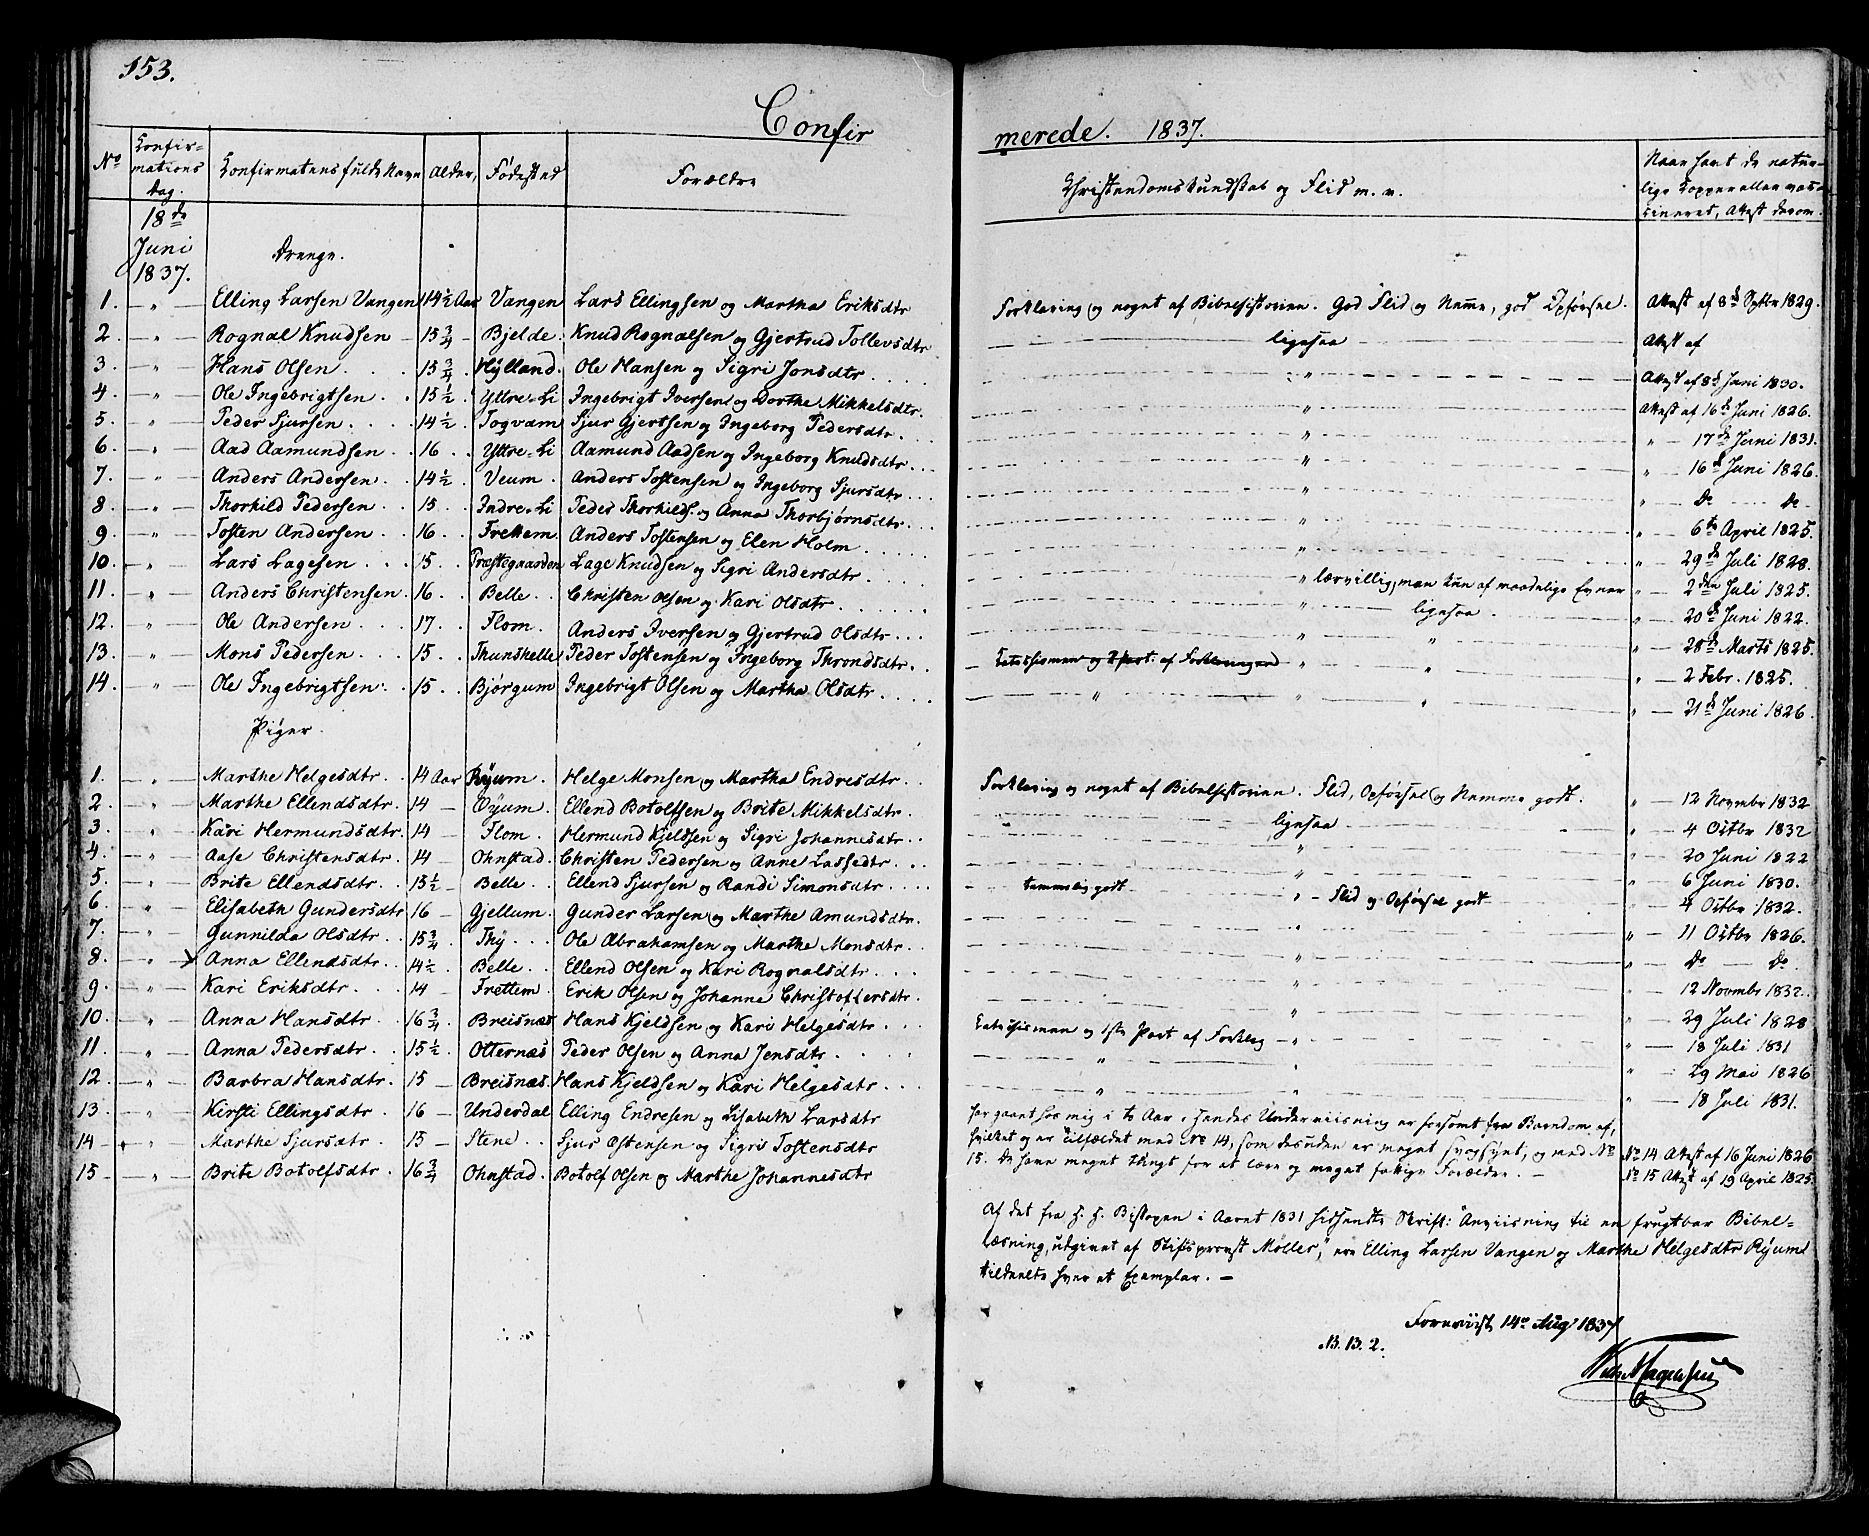 153.
Confirmerede. 1837.
No Confirmations dag. Confirmatens fulde Navn Alder, Fødested Forældre Christendomskundskab og Flid m. v. Naar havt de naturlige Kopper eller vaccineret, Attest derom.
18de Juni 1837.
Drenge.
1. " Elling Larsen Vangen 14 1/2 Aar Vangen Lars Ellingsen og Martha Eriksdtr Forklaring og noget af Bibelhistorien. God Flid og Nemme, god Opførsel. Attest af 8d Septbr 1829.
2. " Rognal Knudsen 15 3/4 Bjelde Knud Rognalsen og Gjertrud Tollevsdtr ligesaa Attest af
3. " Hans Olsen 15 3/4 Hylland. Ole Hansen og Sigri Jonsdtr " Attest af 8d Juni 1830.
4. " Ole Ingebrigtsen 15 1/2 Yttre-Li Ingebrigt Iversen og Dorthe Mikkelsdtr. " Attest af 16d Juni 1826.
5. " Peder Sjursen 14 1/2 Fogvam Sjur Gjertsen og Ingeborg Pedersdtr. " " 17d Juni 1831.
6. " Aad Aamundsen 16 Yttre-Li Aamund Aadsen og Ingeborg Knudsdtr. " " 16d Juni 1826.
7. " Anders Andersen 14 1/2 Veum. Anders Tostensen og Ingeborg Sjursdtr " " do do
8. " Thorkild Pedersen 15 Indre-Li Peder Thorkilds. og Anna Thorbjørnsdtr. " " 6te April 1825.
9. " Tosten Andersen 16. Frettem. Anders Tostensen og Elen Holm " " 29d Juli 1828.
10. " Lars Lagesen 15. Præstegaarden Lage Knudsen og Sigri Andersdtr " lærvillig, men kun af maadelige Evner " 2den Juli 1825.
11. " Anders Christensen. 16. Belle. Christen Olsen og Kari Olsdtr " ligesaa. " 20d Juni 1822.
12. " Ole Andersen 17. Flom. Anders Iversen og Gjertrud Olsdtr " " " 28d Marts 1825.
13. " Mons Pedersen 15. Thunshelle Peder Tostensen og Ingeborg Throndsdtr. Catechismen og 1 Part. af Forklaringen " " " 2 Febr. 1825.
14. " Ole Ingebrigtsen 15 Bjørgum Ingebrigt Olsen og Martha Olsdtr " " " " 21d Juni 1826.
Piger.
1. " Marthe Helgesdtr. 14 Aar Ryum. Helge Monsen og Martha Endresdtr Forklaring og noget af Bibelhistorien. Flid, Opførsel og Nemme godt. " 12 Novmbr 1832
2. " Marthe Ellendsdtr. 14 Øyum. Ellend Botolfsen og Brite Mikkelsdtr. ligesaa " 4 Octbr 1832
3. " Kari Hermundsdtr. 14 Flom. Hermund Kjeldsen og Sigri Johannesdtr " " 20 Juni 1822
4. " Aase Christensdtr 14 Ohnstad. Christen Pedersen og Anne Lassedtr. " " 6 Juni 1830.
5. " Brite Ellendsdtr. 15 1/2 Belle Ellend Sjursen og Randi Simonsdtr temmelig godt " Flid og Opførsel godt 4 Octbr 1832.
6. " Elisabeth Gundersdtr 16 Gjellum. Gunder Larsen og Marthe Amundsdtr. " " 11 Octbr 1826.
7. " Gunnilda Olsdtr. 15 3/4 Thy Ole Abrahamsen og Marthe Monsdtr " " do do.
8. " x Anna Ellendsdtr 14 1/2 Belle Ellend Olsen og Kari Rognalsdtr " " 12 Novmbr 1832.
9. " Kari Eriksdtr 14 Frettem. Erik Olsen og Johanna Christoffersdtr. " " 29 Juli 1828
10. " Anna Hansdtr 16 3/4 Breisnæs Hans Kjeldsen og Kari Helgesdtr Catechismen og 1ste Part af Forklag " " 18 Juli 1831
11. " Anna Pedersdtr 15 1/2 Otternæs Peder Olsen og Anna Jensdtr " " " 29 Mai 1826
12 " Barbra Hansdtr. 15 Breisnæs. Hans Kjeldsen og Kari Helgesdtr " " " 18 Juli 1831.
13. " Kirsti Ellingsdtr 16 Underdal Elling Endresen og Lisabeth Larsdtr har gaaet hos mig i to Aar, hendes Underviisning er forsømt fra Barndom af,
14 " Marthe Sjursdtr 15 Stene Sjur Østensen og Sigri Tostensdtr hvilket og er Tilfældet med No 14, som desuden er meget svagsynt, og med No No 14 Attest af 16 Juni 1826
15 " Brite Botolfsdtr 16 3/4 Ohnstad. Botolf Olsen og Marthe Johannesdtr 15. De have meget tungt for at lære og meget fattige Forældre. No 15 Attest af 19 April 1825.
Af det fra H. H. Biskopen i Aaret 1831 hidsendte Skrift: "Anviisning til en frugtbar Bibel-
læsning, udgivet af Stiftsprovst Møller," ere Elling Larsen Vangen og Marthe Helgesdtr Ryum
tildeelte hver et Exemplar. —
Foreviist 14de Aug 1837
N. B. 2.